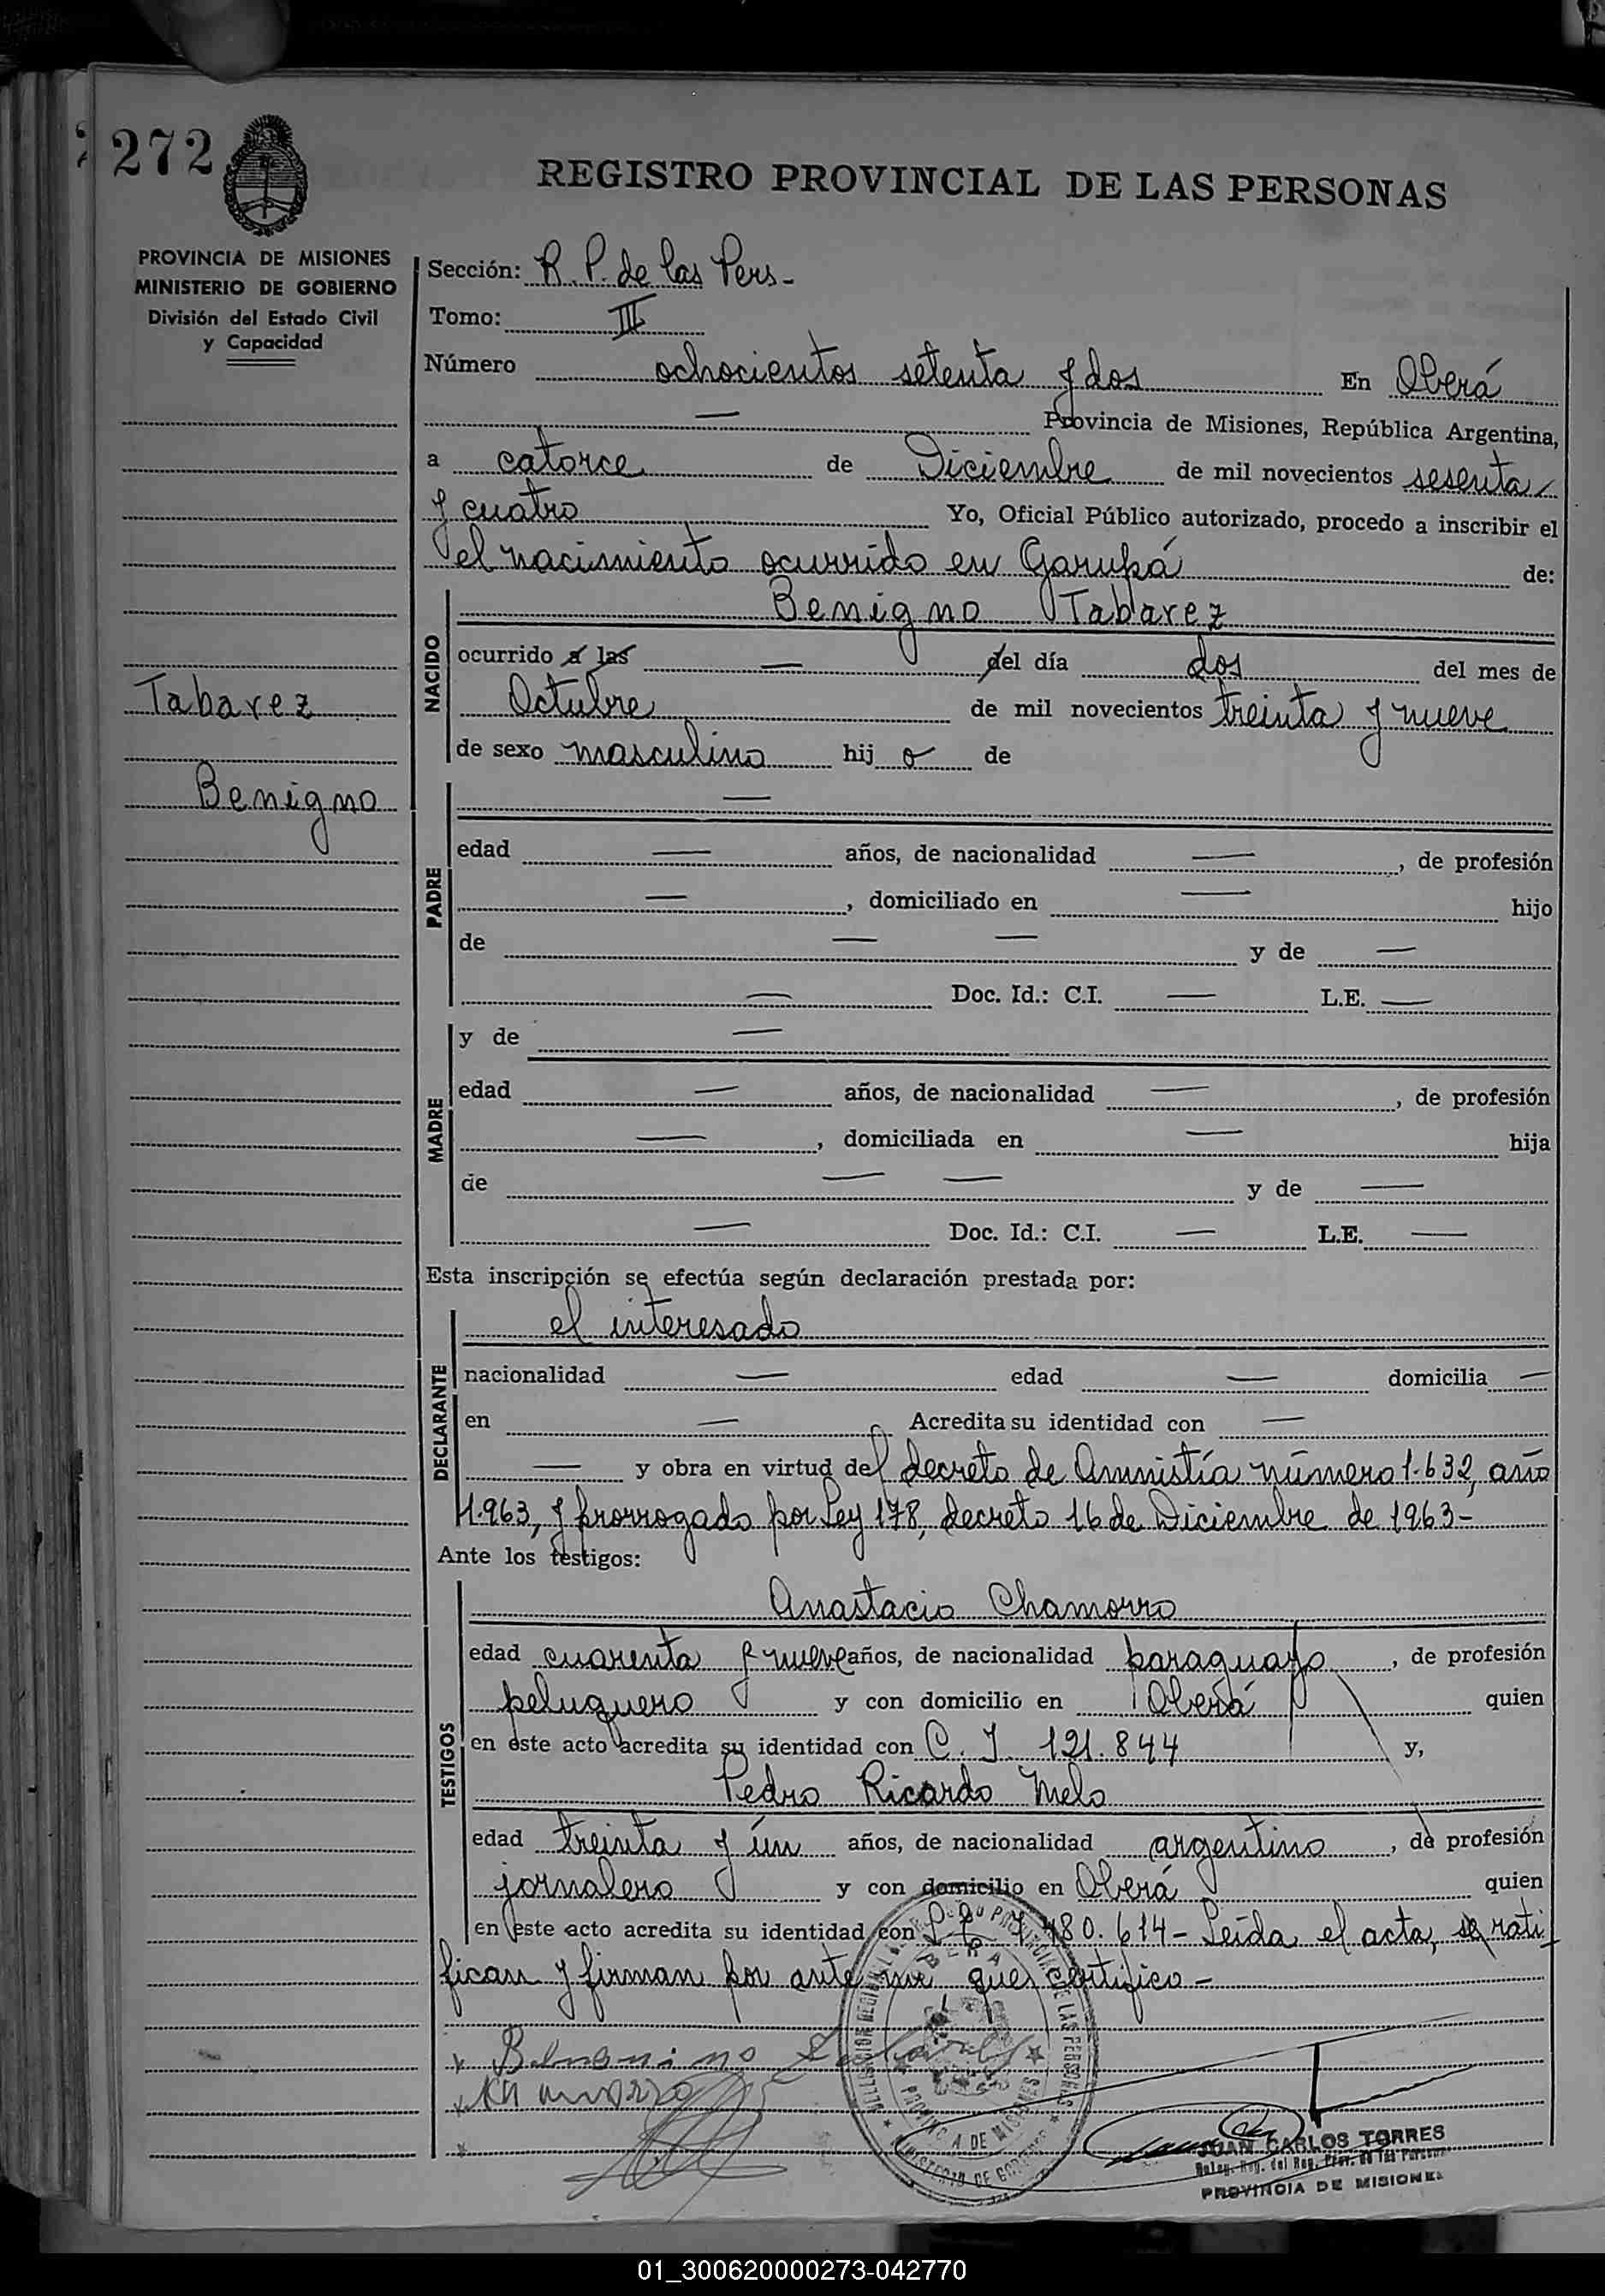 272
REGISTRO PROVINCIAL DE LAS PERSONAS
PROVINCIA DE MISIONES
MINISTERIO DE GOBIERNO
División del Estado Civil
y Capacidad
Sección: R. P. de las Pers-
Tomo: III
Número ochocientos setenta y dos En Oberá
— Provincia de Misiones, República Argentina,
a catorce de Diciembre de mil novecientos sesenta
y cuatro Yo, Oficial Público autorizado, procedo a inscribir el
el nacimiento ocurrido en Garupá de:
Benigno Tabarez
NACIDO
ocurrido a las — del día dos del mes de
Octubre de mil novecientos treinta y nueve
de sexo masculino hij o de
Tabarez
Benigno
—
PADRE
edad — años, de nacionalidad —, de profesión
—, domiciliado en — hijo
de — — y de —
— Doc. Id.: C.I. — L.E. —
MADRE
y de —
edad — años, de nacionalidad —, de profesión
—, domiciliada en — hija
de — — y de —
— Doc. Id.: C.I. — L.E. —
Esta inscripción se efectúa según declaración prestada por:
DECLARANTE
el interesado
nacionalidad — edad — domicilia —
en — Acredita su identidad con —
— y obra en virtud del decreto de Amnistía número 1.632, año
1.963, y prorrogado por Ley 178, decreto 16 de Diciembre de 1963-
Ante los testigos:
TESTIGOS
Anastacio Chamorro
edad cuarenta y nueve años, de nacionalidad paraguayo, de profesión
peluquero y con domicilio en Oberá quien
en este acto acredita su identidad con C. I. 121.844 y,
Pedro Ricardo Melo
edad treinta y ún años, de nacionalidad argentino, de profesión
jornalero y con domicilio en Oberá quien
en este acto acredita su identidad con L. E. 7.480.614- Leída el acta, se rati
fican y firman por ante mi que certifico-
OBERA
PROVINCIA DE MISIONES
MINISTERIO DE GOBIERNO
JUAN CARLOS TORRES
Deleg. Reg. del Reg. Prov. de las Personas
PROVINCIA DE MISIONES
01_300620000273-042770